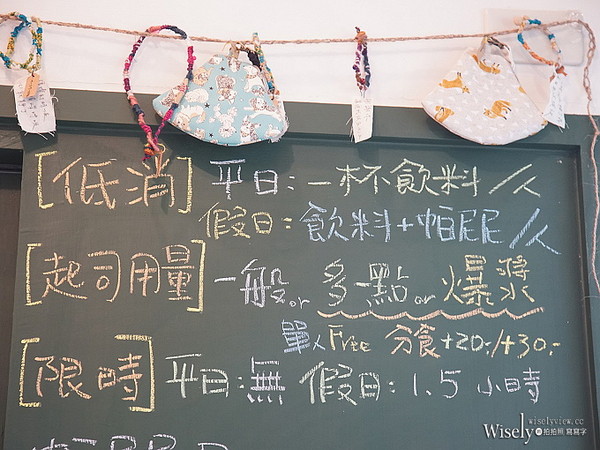 [低消] 平日：一杯飲料/人
假日：飲料+帕尼尼/人
[起司用量] 一般 or 多一點 or 爆漿
單人Free 分食+20./+30.
[限時] 平日：無 假日：1.5小時
wiselyview.cc
Wisely 拍拍照 寫寫字